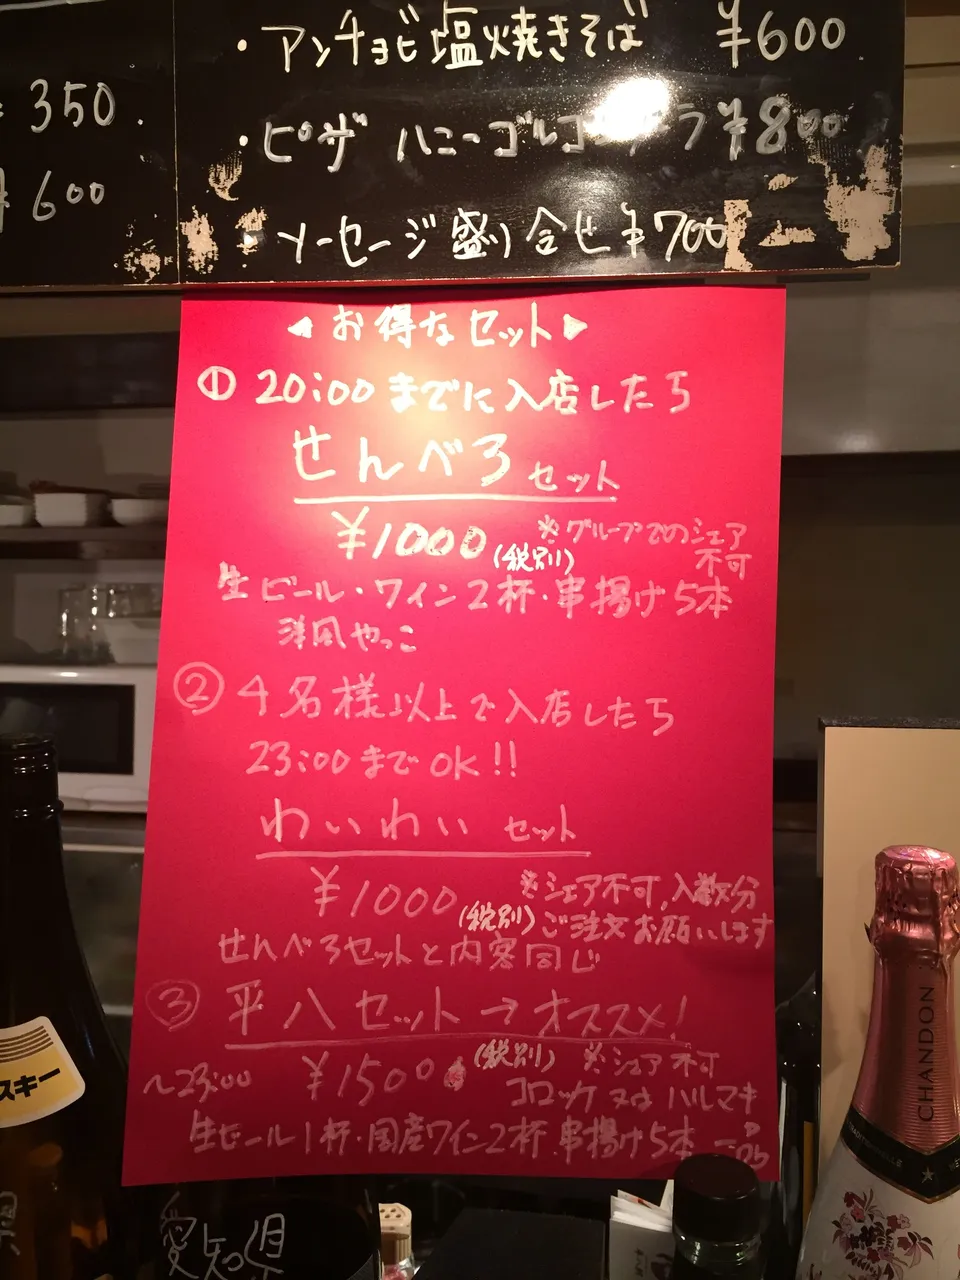 350
・アンチョビ塩焼きそば ¥600
600
・ピザ ハニーゴルゴンゾーラ ¥800
・ソーセージ盛り合せ ¥700
◀お得なセット▶
① 20:00までに入店したら
せんべろ セット
¥1000 (税別) ※グループでのシェア
不可
生ビール・ワイン2杯・串揚げ5本
洋風やっこ
② 4名様以上で入店したら
23:00までOK!!
わいわい セット
¥1000 (税別) ※シェア不可,人数分
ご注文お願いします
せんべろセットと内容同じ
③ 平八セット→オススメ!
~23:00 ¥1500 (税別) ※シェア不可
コロッケ又はハルマキ
生ビール1杯・国産ワイン2杯・串揚げ5本 一品
スキー
愛知県
CHANDON